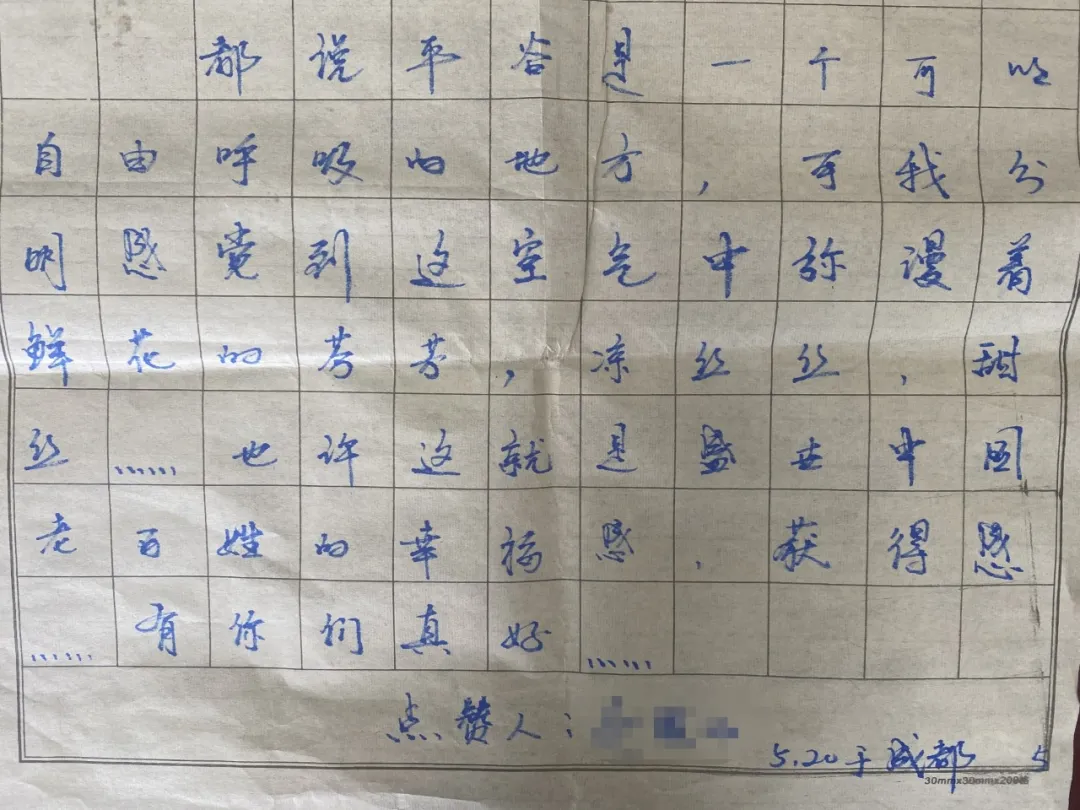 都说平谷是一个可以
自由呼吸的地方，可我分
明感觉到这空气中弥漫着
鲜花的芬芳，凉丝丝，甜
丝……也许这就是盛世中国
老百姓的幸福感、获得感
……有你们真好……
点赞人：
5.20于成都 5
30mmx30mmx209格